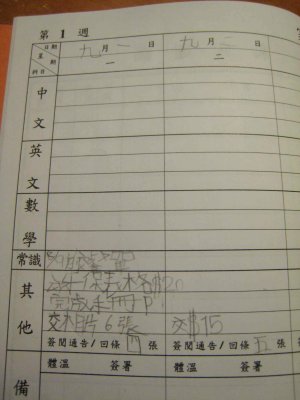 第 1 週
日期 九月一日 九月二日
星期 一 二
科目
中文
英文
數學
常識
其他
交相片6張 交$15
簽閱通告/回條 四 張 簽閱通告/回條 五 張
體溫 簽署 體溫 簽署
備